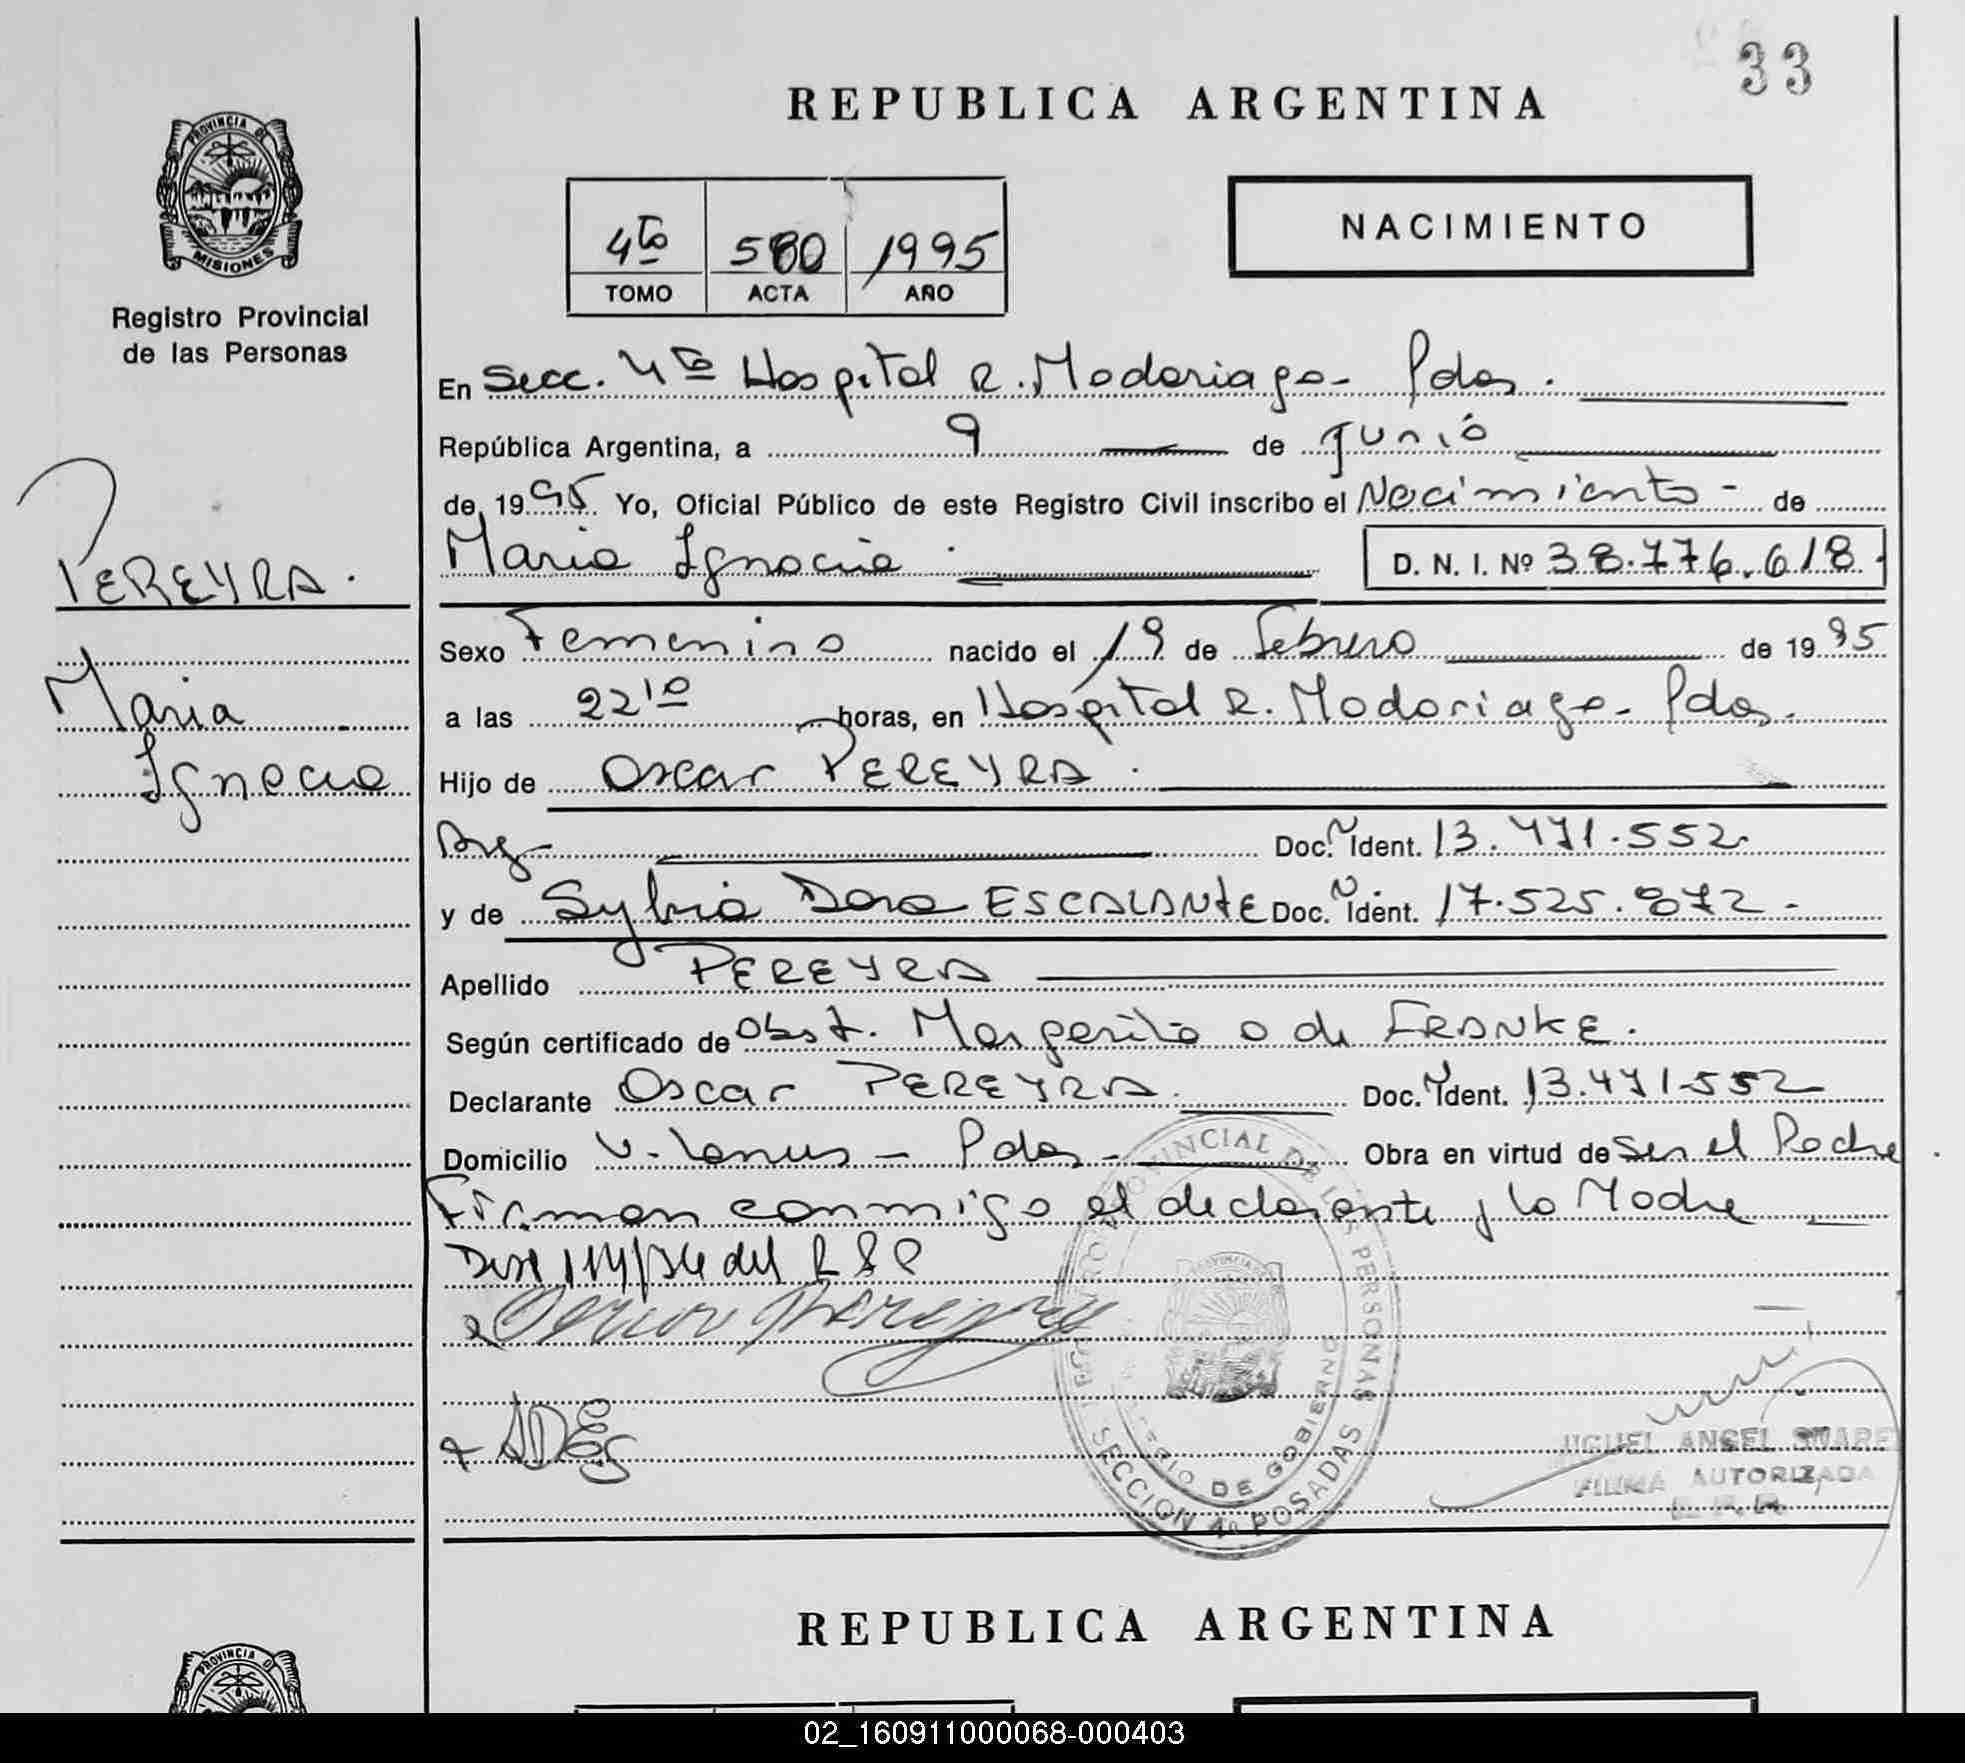 33
REPUBLICA ARGENTINA
PROVINCIA DE
MISIONES
Registro Provincial
de las Personas
4to 580 1995
TOMO ACTA AÑO
NACIMIENTO
En Secc. 4ta Hospital R. Madariaga - Pdas.
República Argentina, a 9 de Junio
de 1995 Yo, Oficial Público de este Registro Civil inscribo el Nacimiento - de
Maria Ignacia D. N. I. Nº 38.776.618.
PEREYRA.
Maria
Ignacia
Sexo Femenino nacido el 19 de Febrero de 1995
a las 22 10 horas, en Hospital R. Madariaga - Pdas.
Hijo de Oscar PEREYRA.
Arg Doc. N Ident. 13.471.552
y de Sylvia Dora ESCALANTE Doc. N Ident. 17.525.872 -
Apellido PEREYRA
Según certificado de Obst. Margarita O de FRANKE.
Declarante Oscar PEREYRA. Doc. N Ident. 13.471.552
Domicilio V. Lanus - Pdas - Obra en virtud de Ser el Padre.
Firman conmigo el declarante y la Madre
del
REGISTRO PROVINCIAL DE LAS PERSONAS
MINISTERIO DE GOBIERNO
SECCION 4a POSADAS
MIGUEL ANGEL SUAREZ
FIRMA AUTORIZADA
REPUBLICA ARGENTINA
PROVINCIA DE
02_160911000068-000403